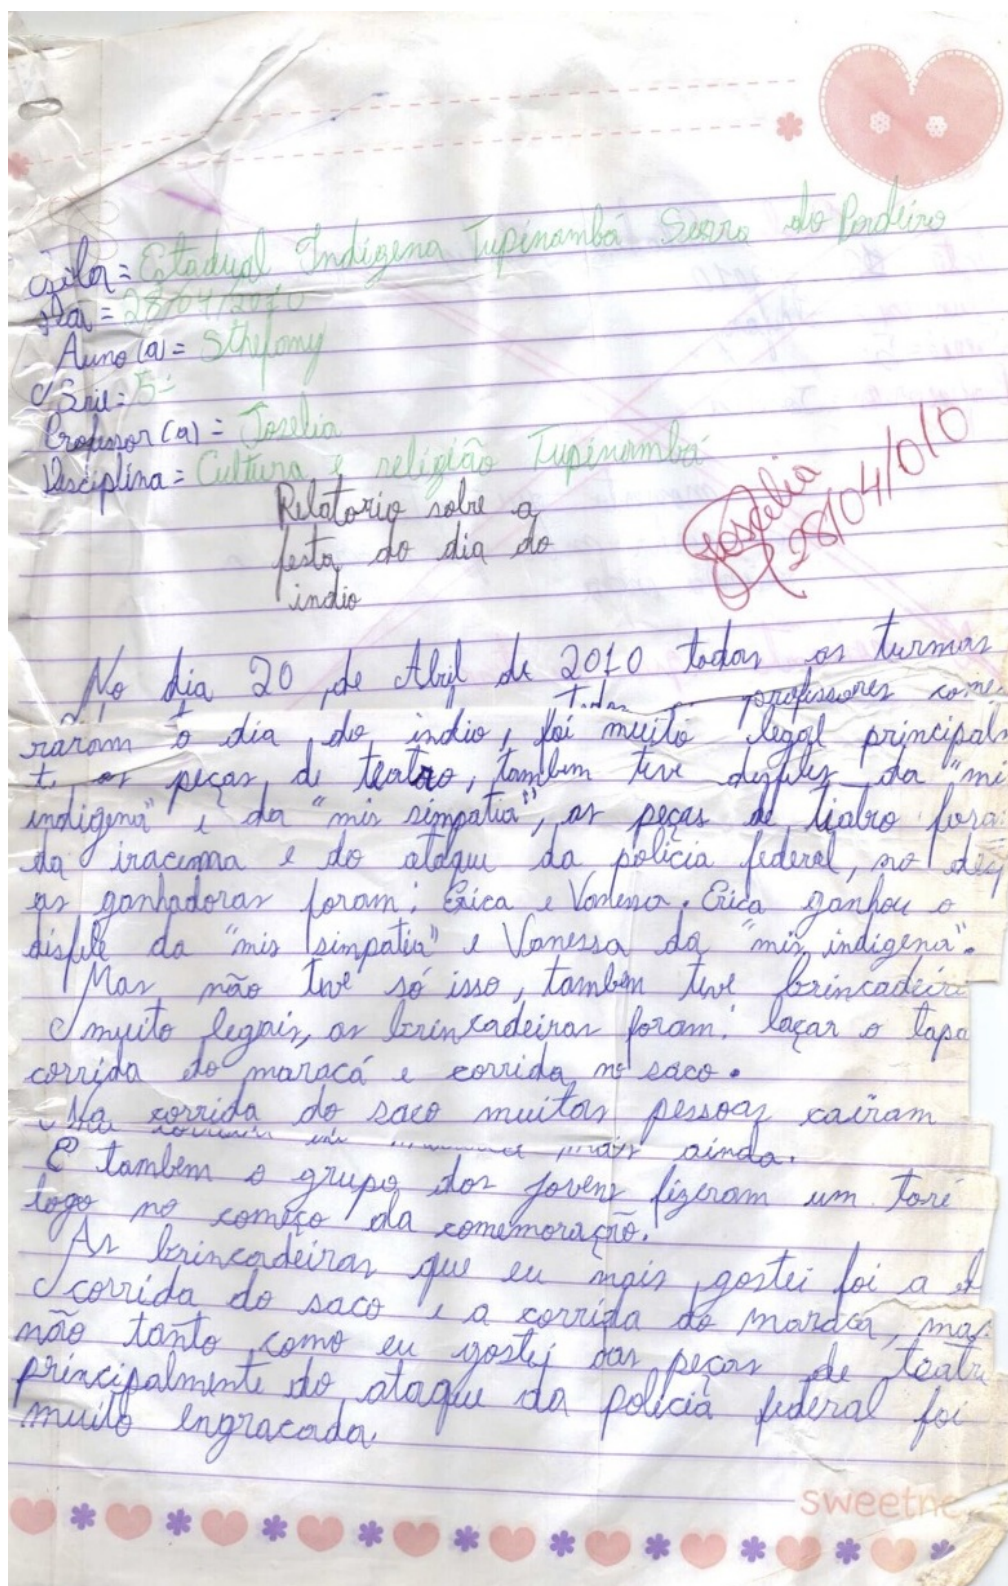 = Estadual Indígena Tupinambá Serra do Pardeiro
= 28/04/2010
Auno (a) = Sthefany
Srie: 5ª
Professor (a) = Joselia
Disciplina = Cultura e religião Tupinambá
Relatorio sobre a
festa do dia do
indio
Joselia
28/04/010
No dia 20 de Abril de 2010 todas as turmas
professores come
raram o dia do indio, foi muito legal principal
t as peças de teatro, tambem teve da "mi
indigena" e da "mis simpatia", as peças de tiatro fora
da iracema e do ataque da policia federal, no
as ganhadoras foram: Erica e Vanessa. Erica ganhou o
disfile da "mis simpatia" e Vanessa da "mis indigena".
Mas não teve só isso, tambem teve brincadeir
muito legais, as brincadeiras foram: laçar o tapa
corrida do maracá e corrida no saco.
Na corrida do saco muitas pessoas caíram
mais ainda.
E tambem o grupo dos jovens fizeram um toré
logo no começo da comemoração.
As brincadeiras que eu mais gostei foi a
corrida do saco e a corrida do maráca, mas
não tanto como eu gostei das peças de teatr
principalmente do ataque da policia federal foi
muito engracada.
sweetne